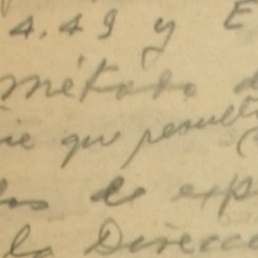 4.49 y E
método d
que result
los de exp
la Direcc